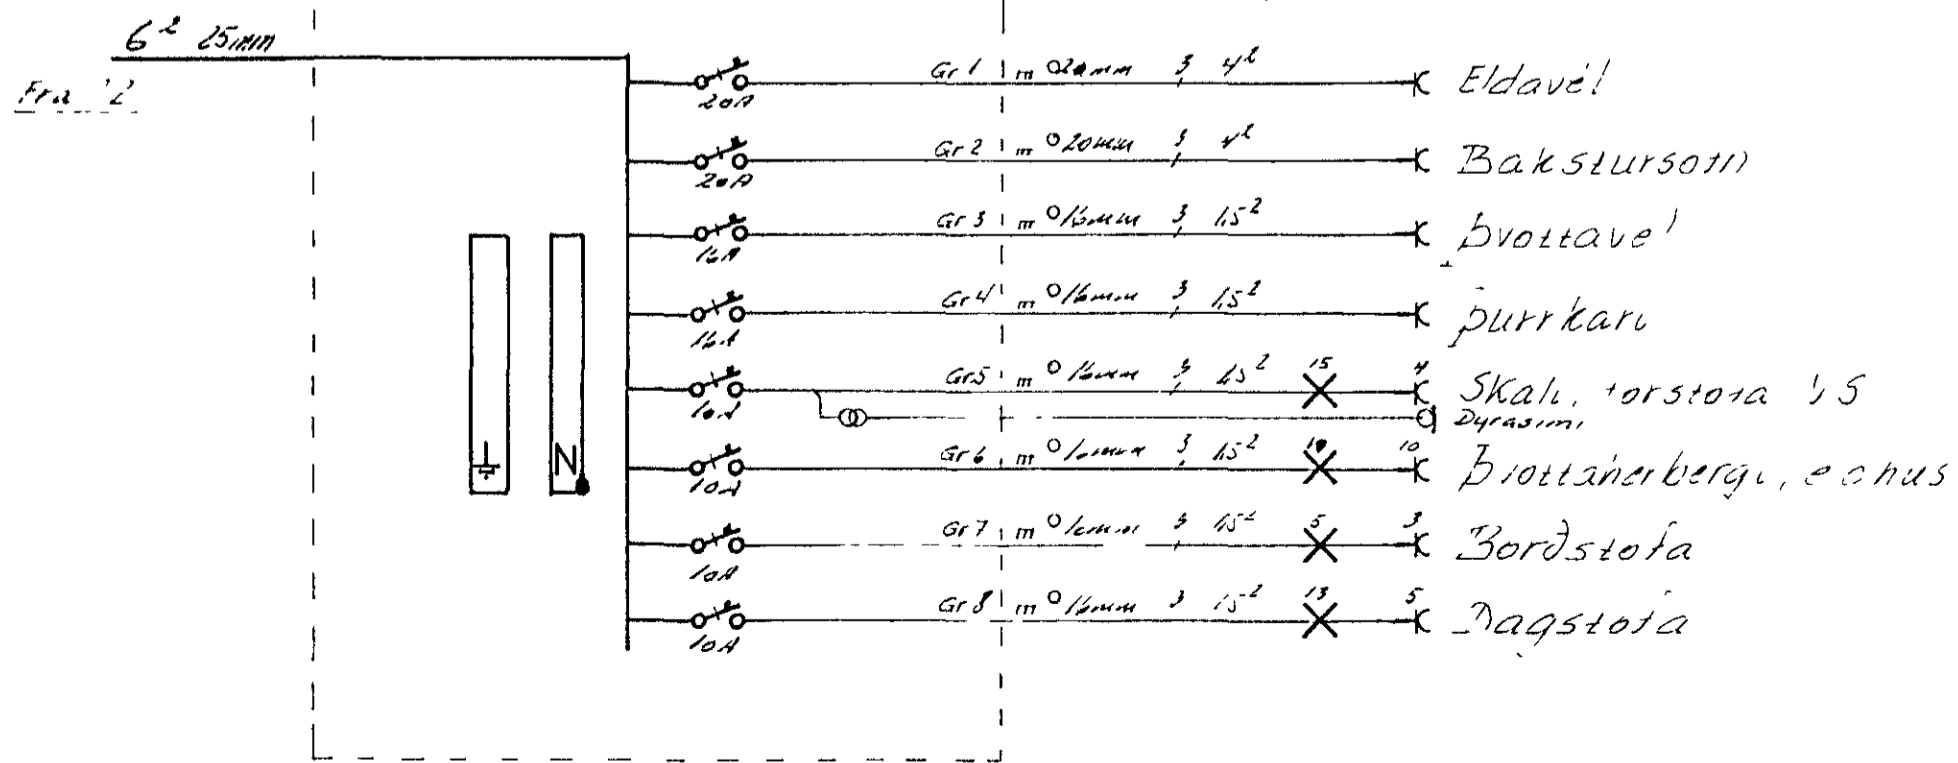 6² 25mm
Gr 1 m ⌀20mm 3 4² Eldavél
20A
Gr 2 m ⌀20mm 3 4² Bakstursofn
20A
Gr 3 m ⌀16mm 3 1,5² Þvottavél
16A
Gr 4 m ⌀16mm 3 1,5² Þurrkari
16A
Gr 5 m ⌀16mm 3 1,5² 15 4 Skáli, forstofa
10A
Dyrasími
Gr 6 m ⌀16mm 3 1,5² 10 10
10A
N
Gr 7 m ⌀16mm 3 1,5² 5 3 Borðstofa
10A
Gr 8 m ⌀16mm 3 1,5² 13 5 Dagstofa
10A